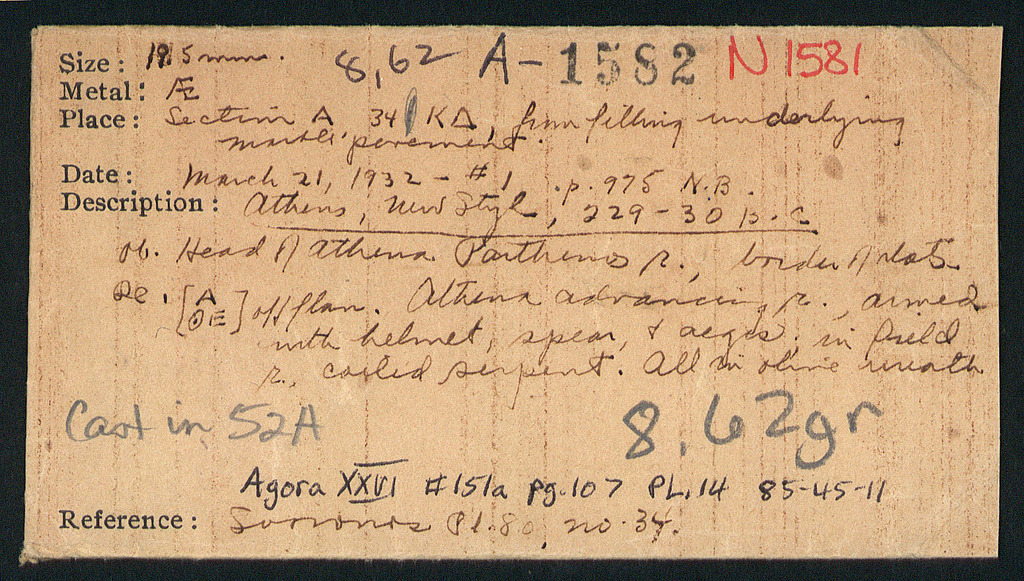 Size: 19.5 mm. 8,62 A-1582 N 1581
Metal: Æ
Place: Section A 34/ΚΔ, from filling underlying
marble pavement.
Date: March 21, 1932 - #1 p. 975 N.B.
Description: Athens, New Style, 229-30 B.C.
Ob. Head of Athena Parthenos r., border of dots
Re. [Α ΘΕ] off flan. Athena advancing r. armed
with helmet, spear, & aegis; in field
r., coiled serpent. All in olive wreath
Cast in 52A 8,62gr
Agora XXVI #151a pg.107 PL.14 85-45-11
Reference: Svoronos Pl. 80, no. 34.